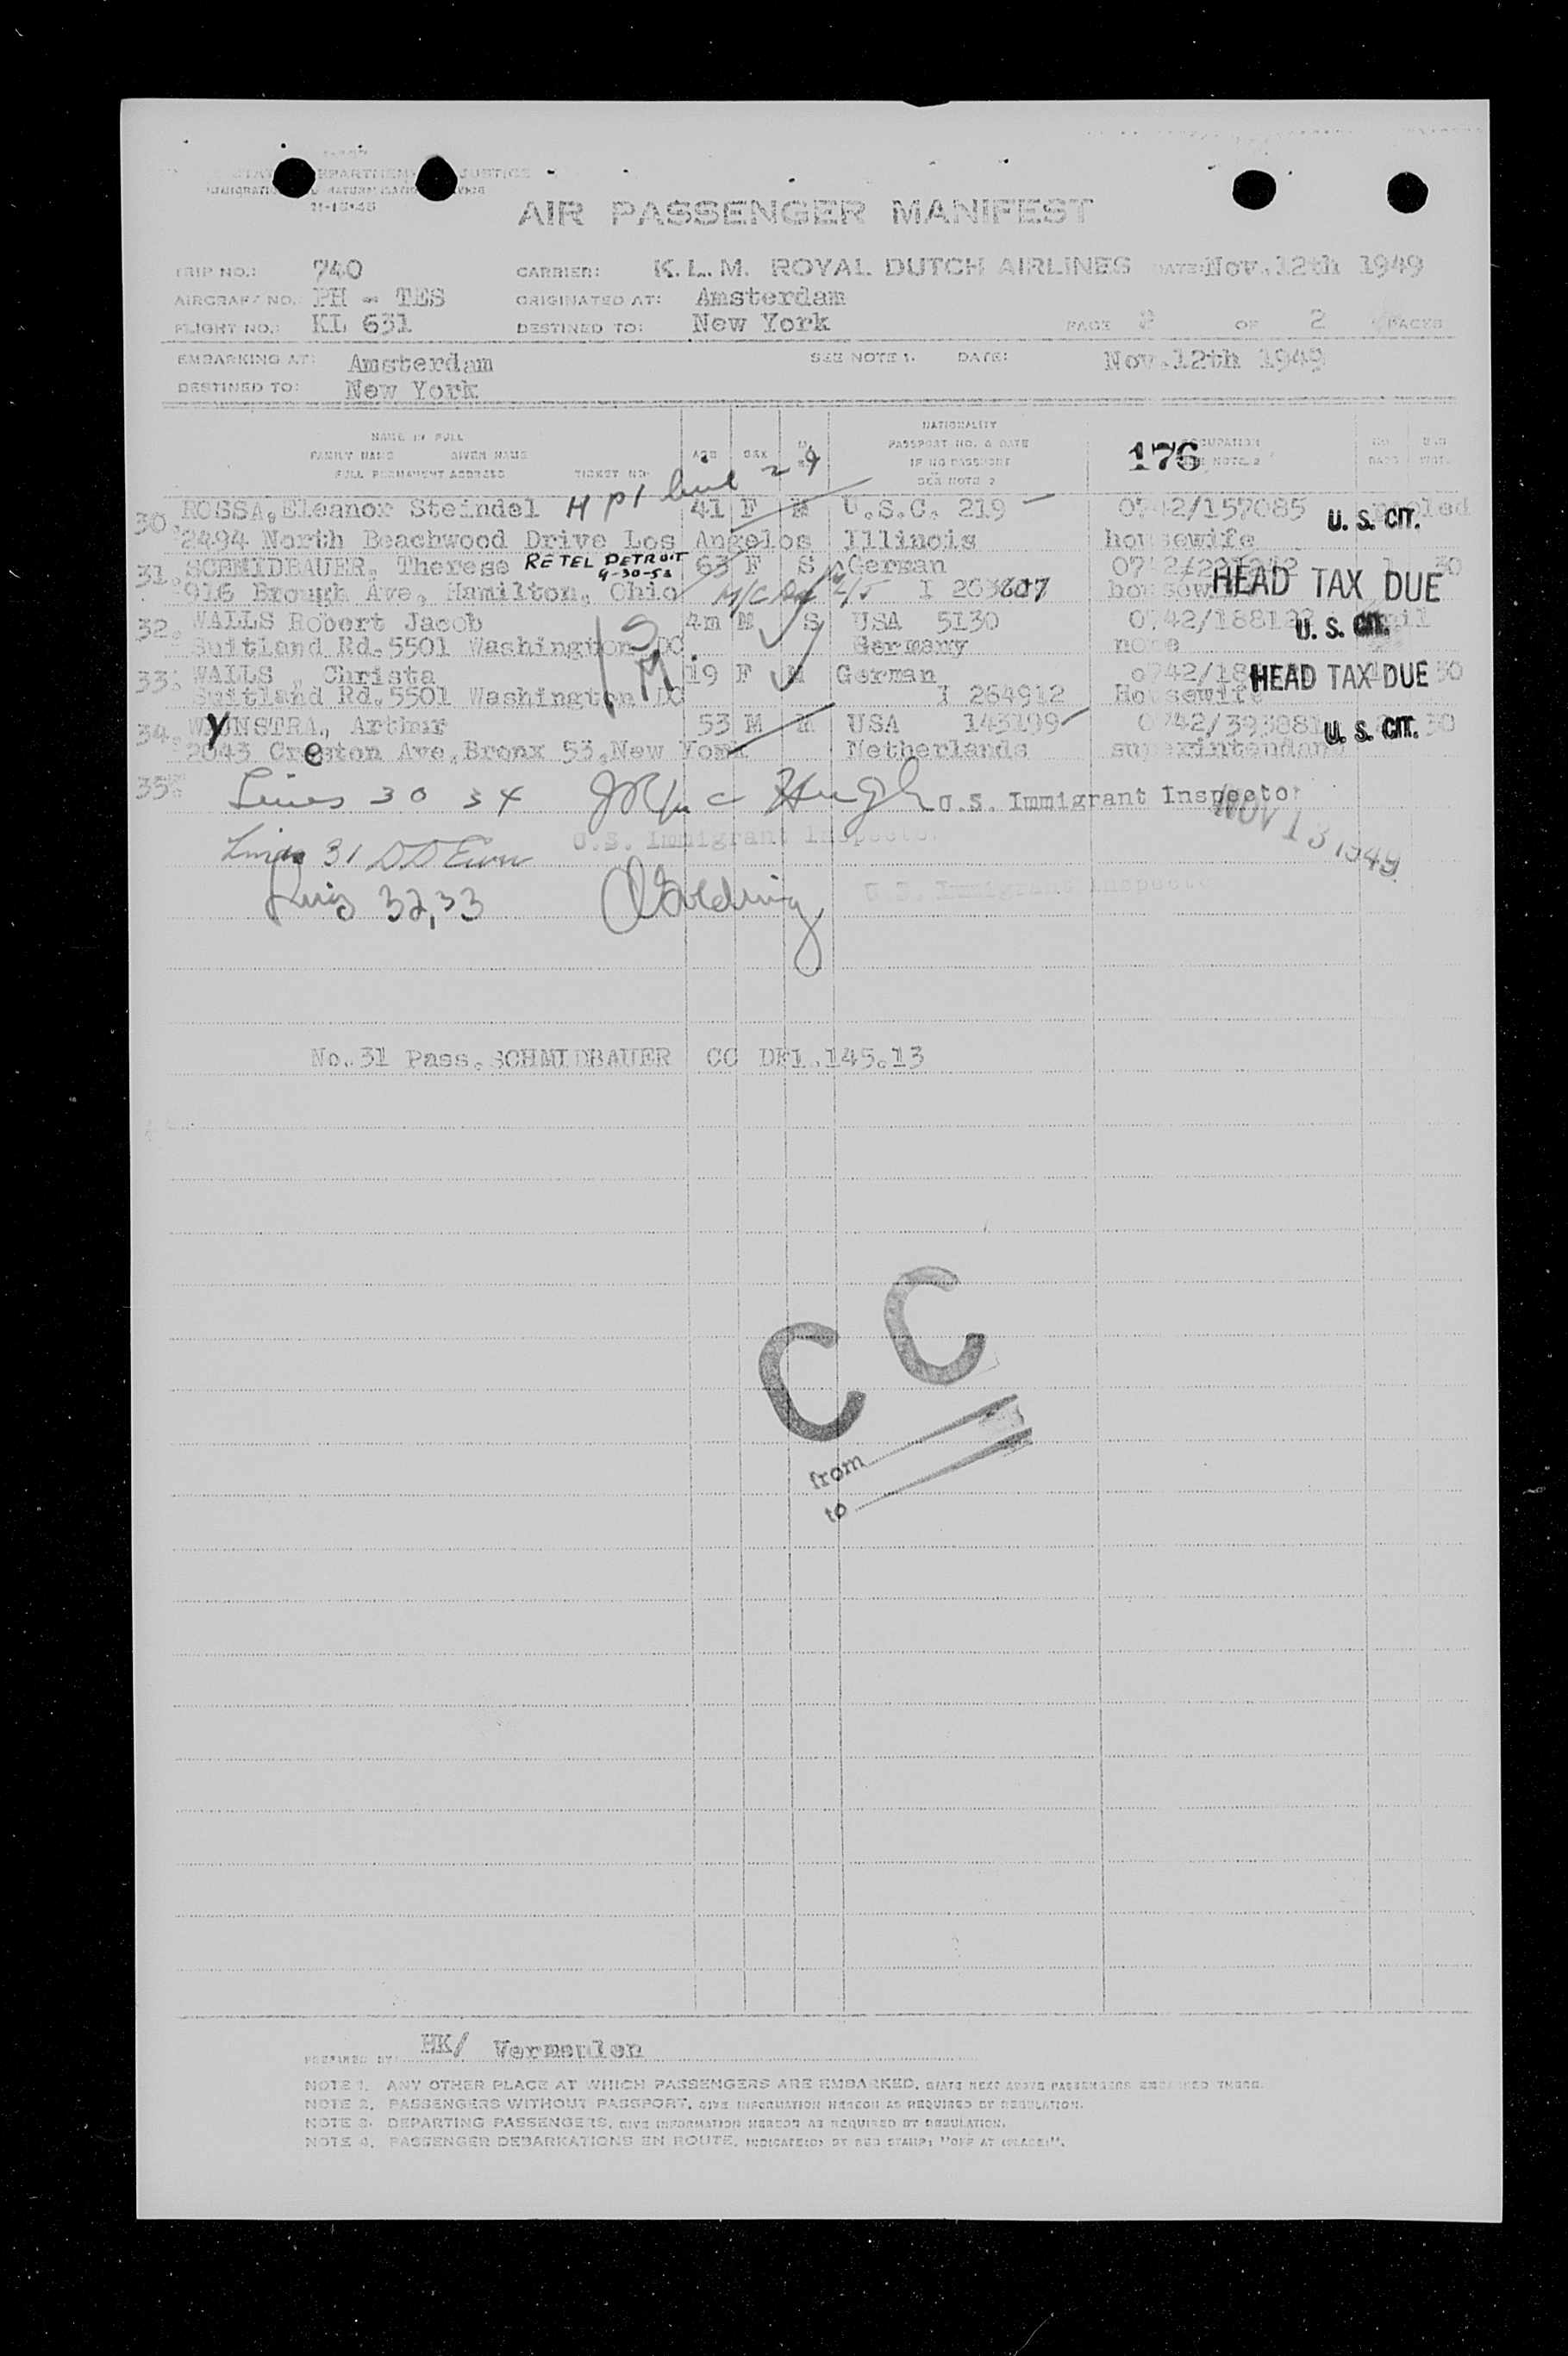 DEPARTMENT JUSTICE
11-15-48
AIR PASSENGER MANIFEST
TRIP NO.: 740 CARRIER: K.L.M. ROYAL DUTCH AIRLINES DATE: Nov.12th 1949
AIRCRAFT NO. PH - TES ORIGINATED AT: Amsterdam
FLIGHT NO.: KL 631 DESTINED TO: New York PAGE 2 OF 2 PAGES
EMBARKING AT: Amsterdam SEE NOTE 1. DATE: Nov.12th 1949
DESTINED TO: New York
NAME IN FULL NATIONALITY
FAMILY NAME GIVEN NAME AGE SEX PASSPORT NO. & DATE 176
FULL PERMANENT ADDRESS TICKET NO. IF NO PASSPORT
SEE NOTE 2
30. ROSSA, Eleanor Steindel H P1 line 29 41 F M U.S.C. 219 0742/157085 U. S. CIT.
2494 North Beachwood Drive Los Angelos Illinois housewife
31. SCHMIDBAUER, Therese RETEL DETROIT 63 F S German HEAD TAX DUE
9-30-53
916 Brough Ave, Hamilton, Ohio I 263607
32. WALLS Robert Jacob 4m M S USA 5130 U. S. CIT.
Suitland Rd.5501 Washington DC Germany none
33. WALLS , Christa 19 F M German HEAD TAX DUE
Suitland Rd.5501 Washington DC I 264912 Housewife
34. WYNSTRA, Arthur 53 M M USA 143199 0742/393881 U. S. CIT.
2043 Creston Ave,Bronx 53,New York Netherlands superintendant
35. Lines 30 34 U.S. Immigrant Inspector
NOV 13 1949
Lines 31 U.S. Immigrant Inspector
Lines 32,33 Golding U.S. Immigrant Inspector
No.31 Pass.SCHMIDBAUER CC DFl.145.13
C C
from
to
PREPARED BY: HK/ Vermeulen
NOTE 1. ANY OTHER PLACE AT WHICH PASSENGERS ARE EMBARKED, STATE NEXT ABOVE PASSENGERS EMBARKED THERE.
NOTE 2. PASSENGERS WITHOUT PASSPORT, GIVE INFORMATION HEREON AS REQUIRED BY REGULATION.
NOTE 3. DEPARTING PASSENGERS, GIVE INFORMATION HEREON AS REQUIRED BY REGULATION.
NOTE 4. PASSENGER DEBARKATIONS EN ROUTE, INDICATE(D) BY RED STAMP: "OFF AT (PLACE)".